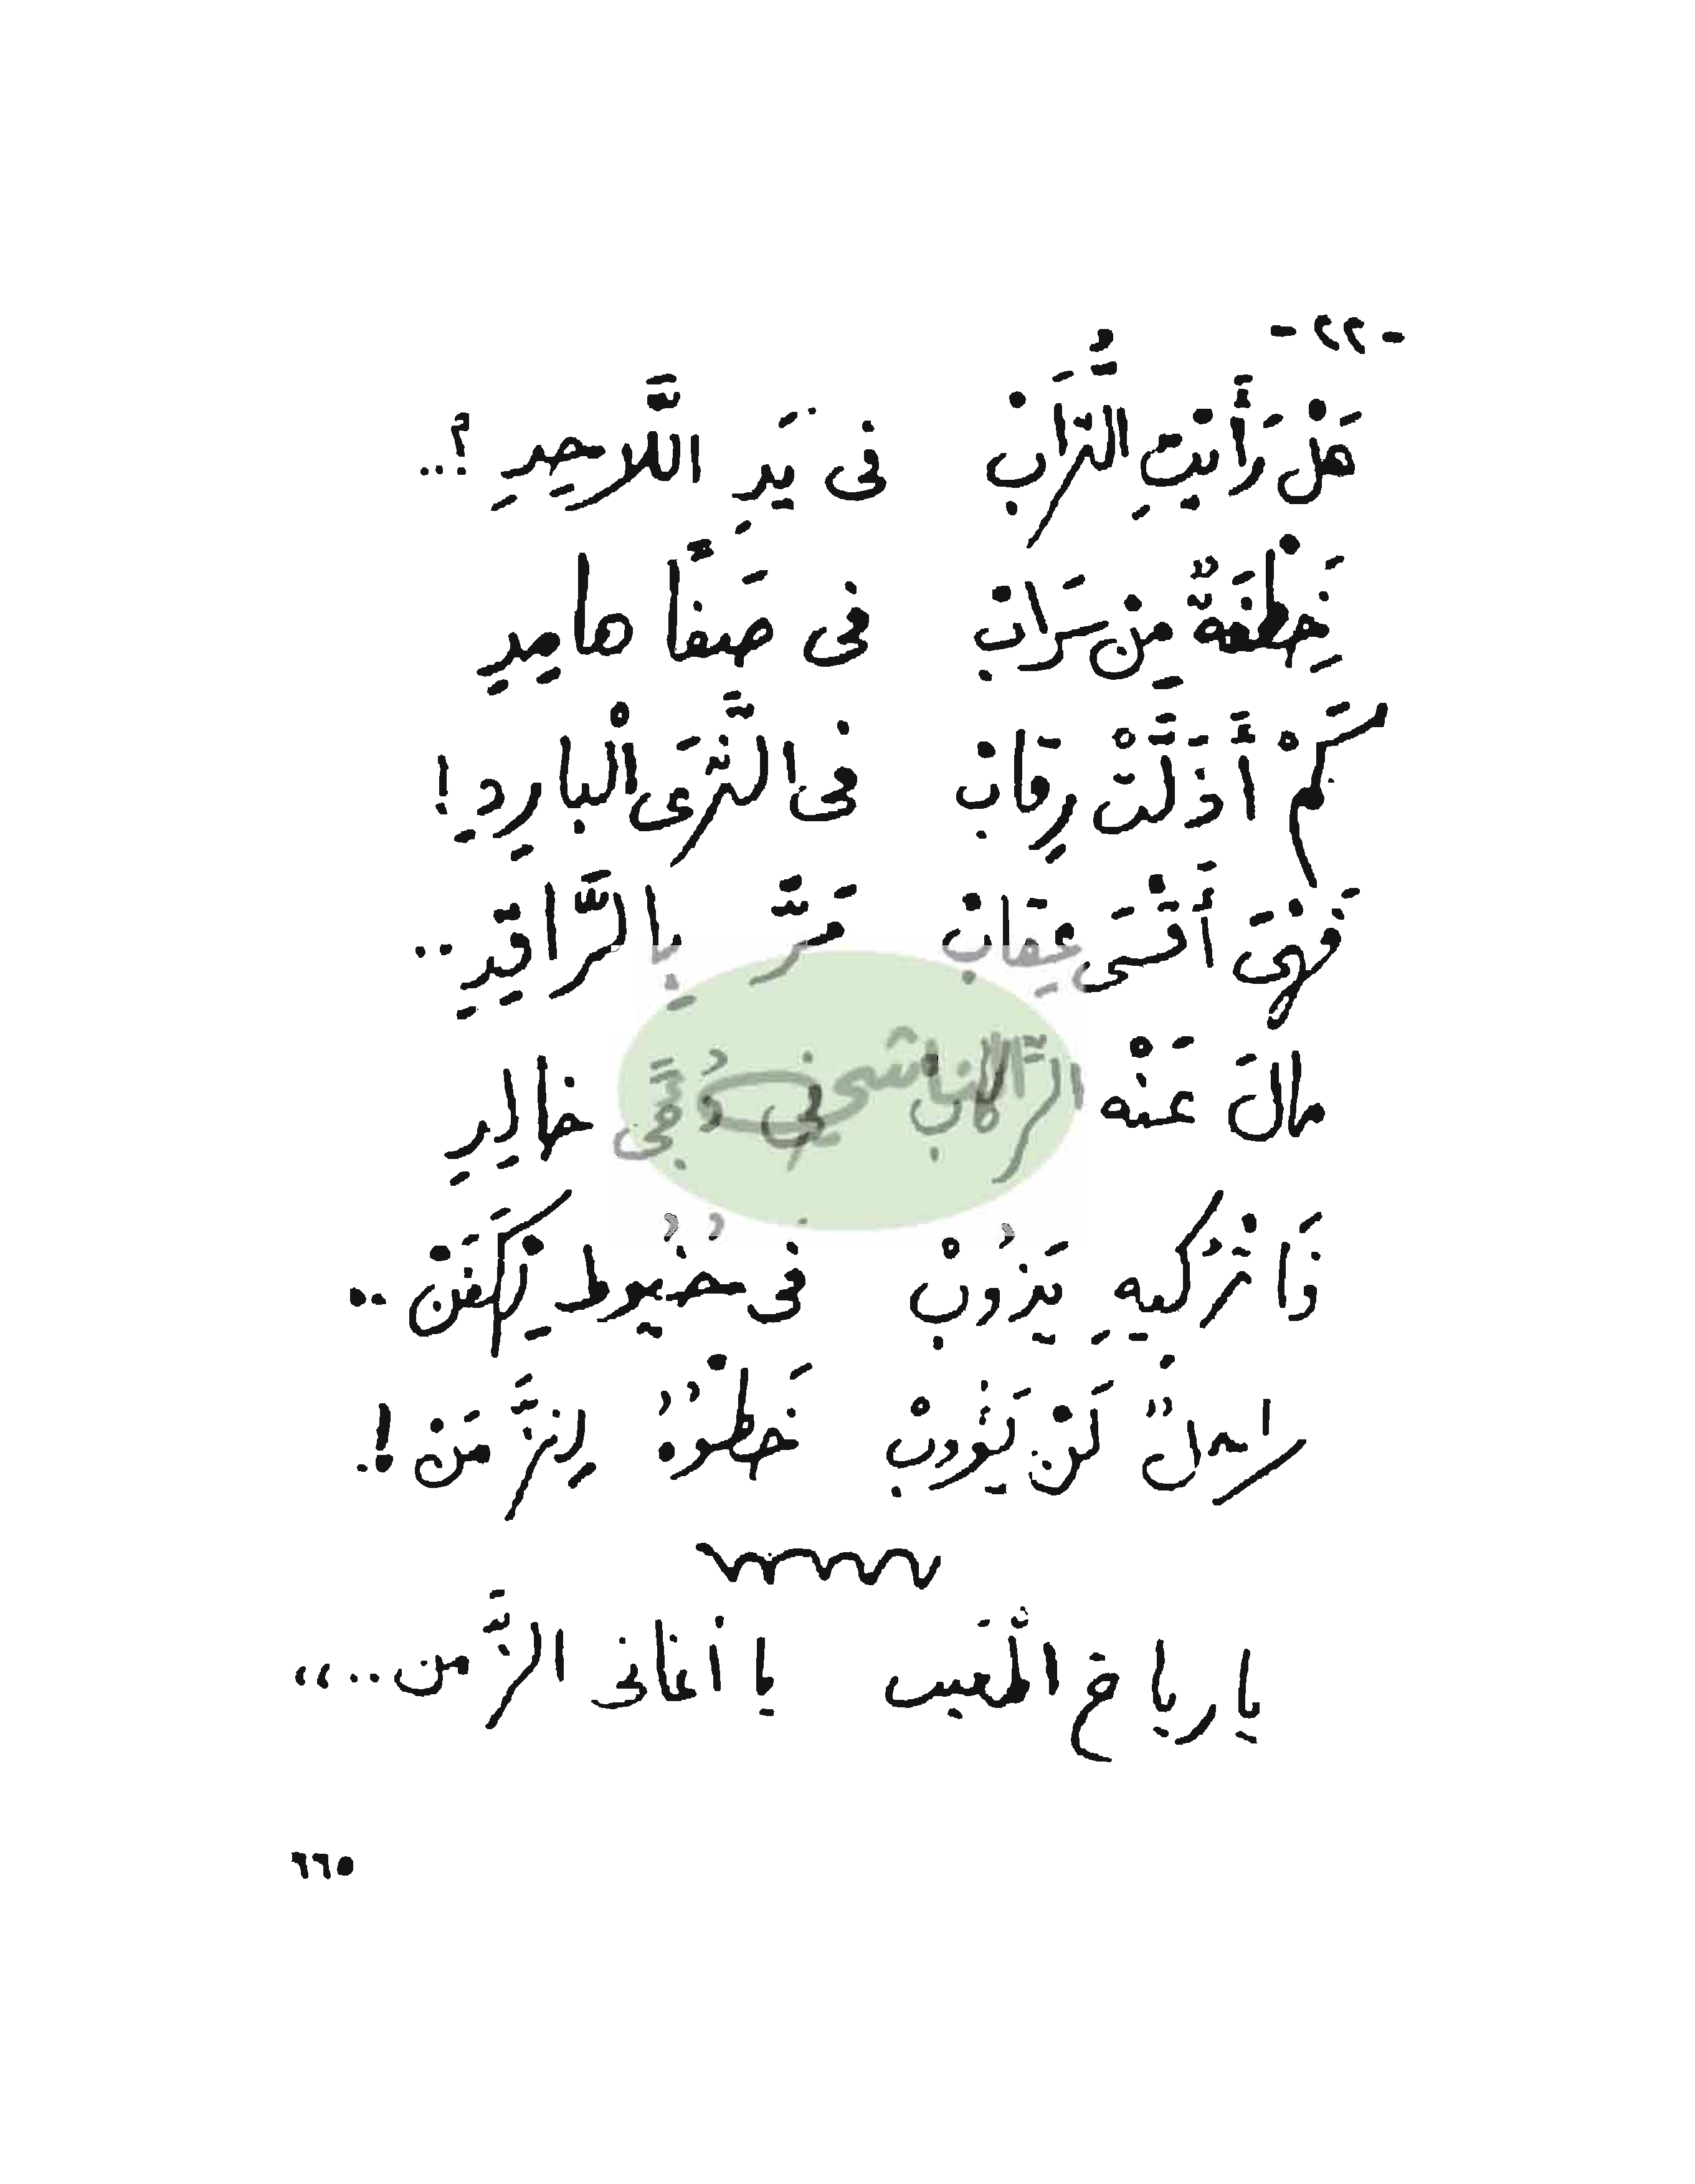 - ٢٢ -
هَلْ رَأَيْتِ التُّرَابْ فى يَدِ اللَّاحِدِ ؟..
خِطْفَةٌ مِنْ سَرَابْ فى صَفًا هامِدِ
كَمْ أَذَلَّتْ رِقابْ فى الثَّرَى الْبارِدِ !
فَهْىَ أَقْسَى عِقابْ مَرَّ بِالرَّاقِدِ ..
مالَ عَنْه الرِّكابْ فى دُجًى خالِدِ
فَاتْرُكيهِ يَذُوبْ فى خُيُوطِ الكَفَنْ ..
لَنْ يَئُوبْ خَطْوُهُ لِلزَّمَنْ !.
يا رياح المَغيب يا أغانى الزَّمن ..،،
٦٦٥